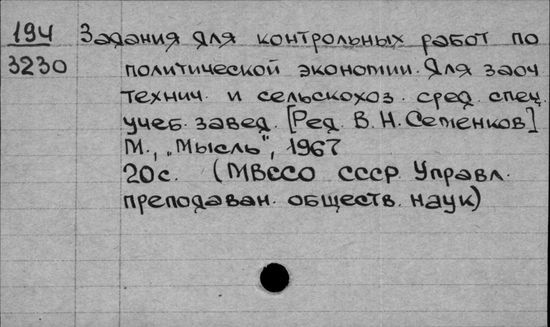 194 Задания для контрольных работ по
3230 политической экономии. Для заоч.
технич. и сельскохоз. сред. спец.
учеб. завед. [Ред. В. Н. Семенков]
М., „Мысль", 1967
20с. (МВССО СССР. Управл.
преподаван. обществ. наук)